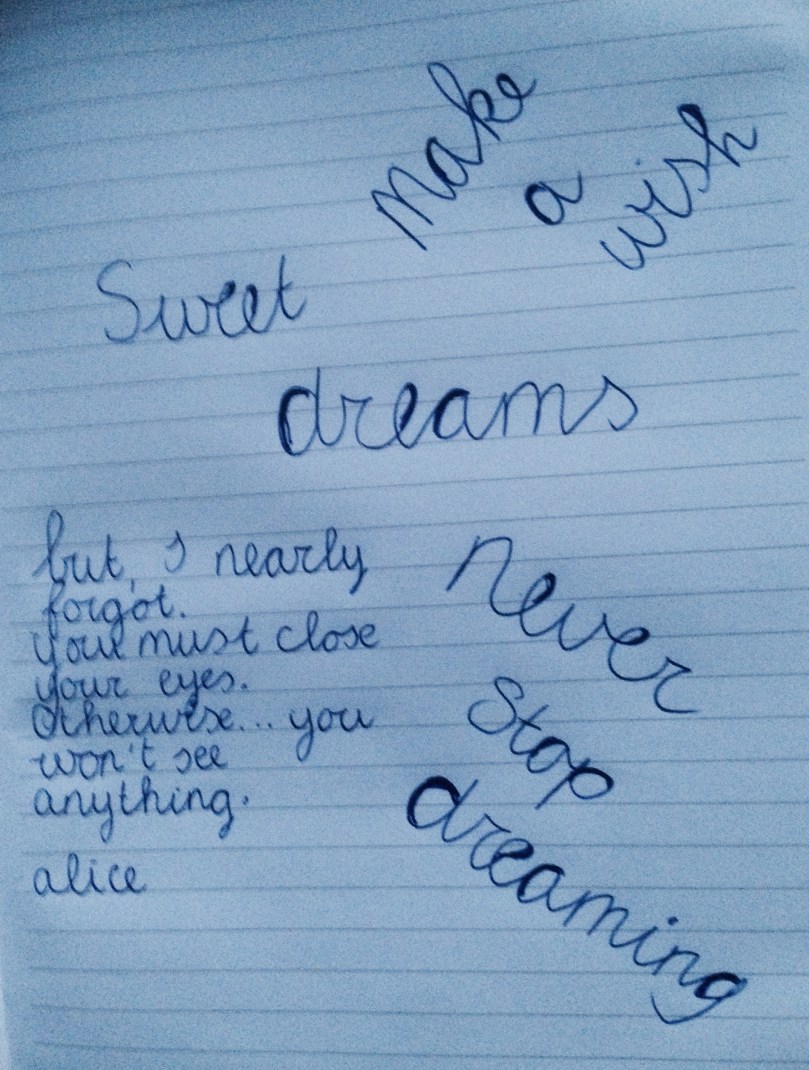 Make
a
wish
Sweet
dreams
but, I nearly
forgot.
your must close
your eyes.
Otherwise... you
won't see
anything.
alice
Never
Stop
dreaming